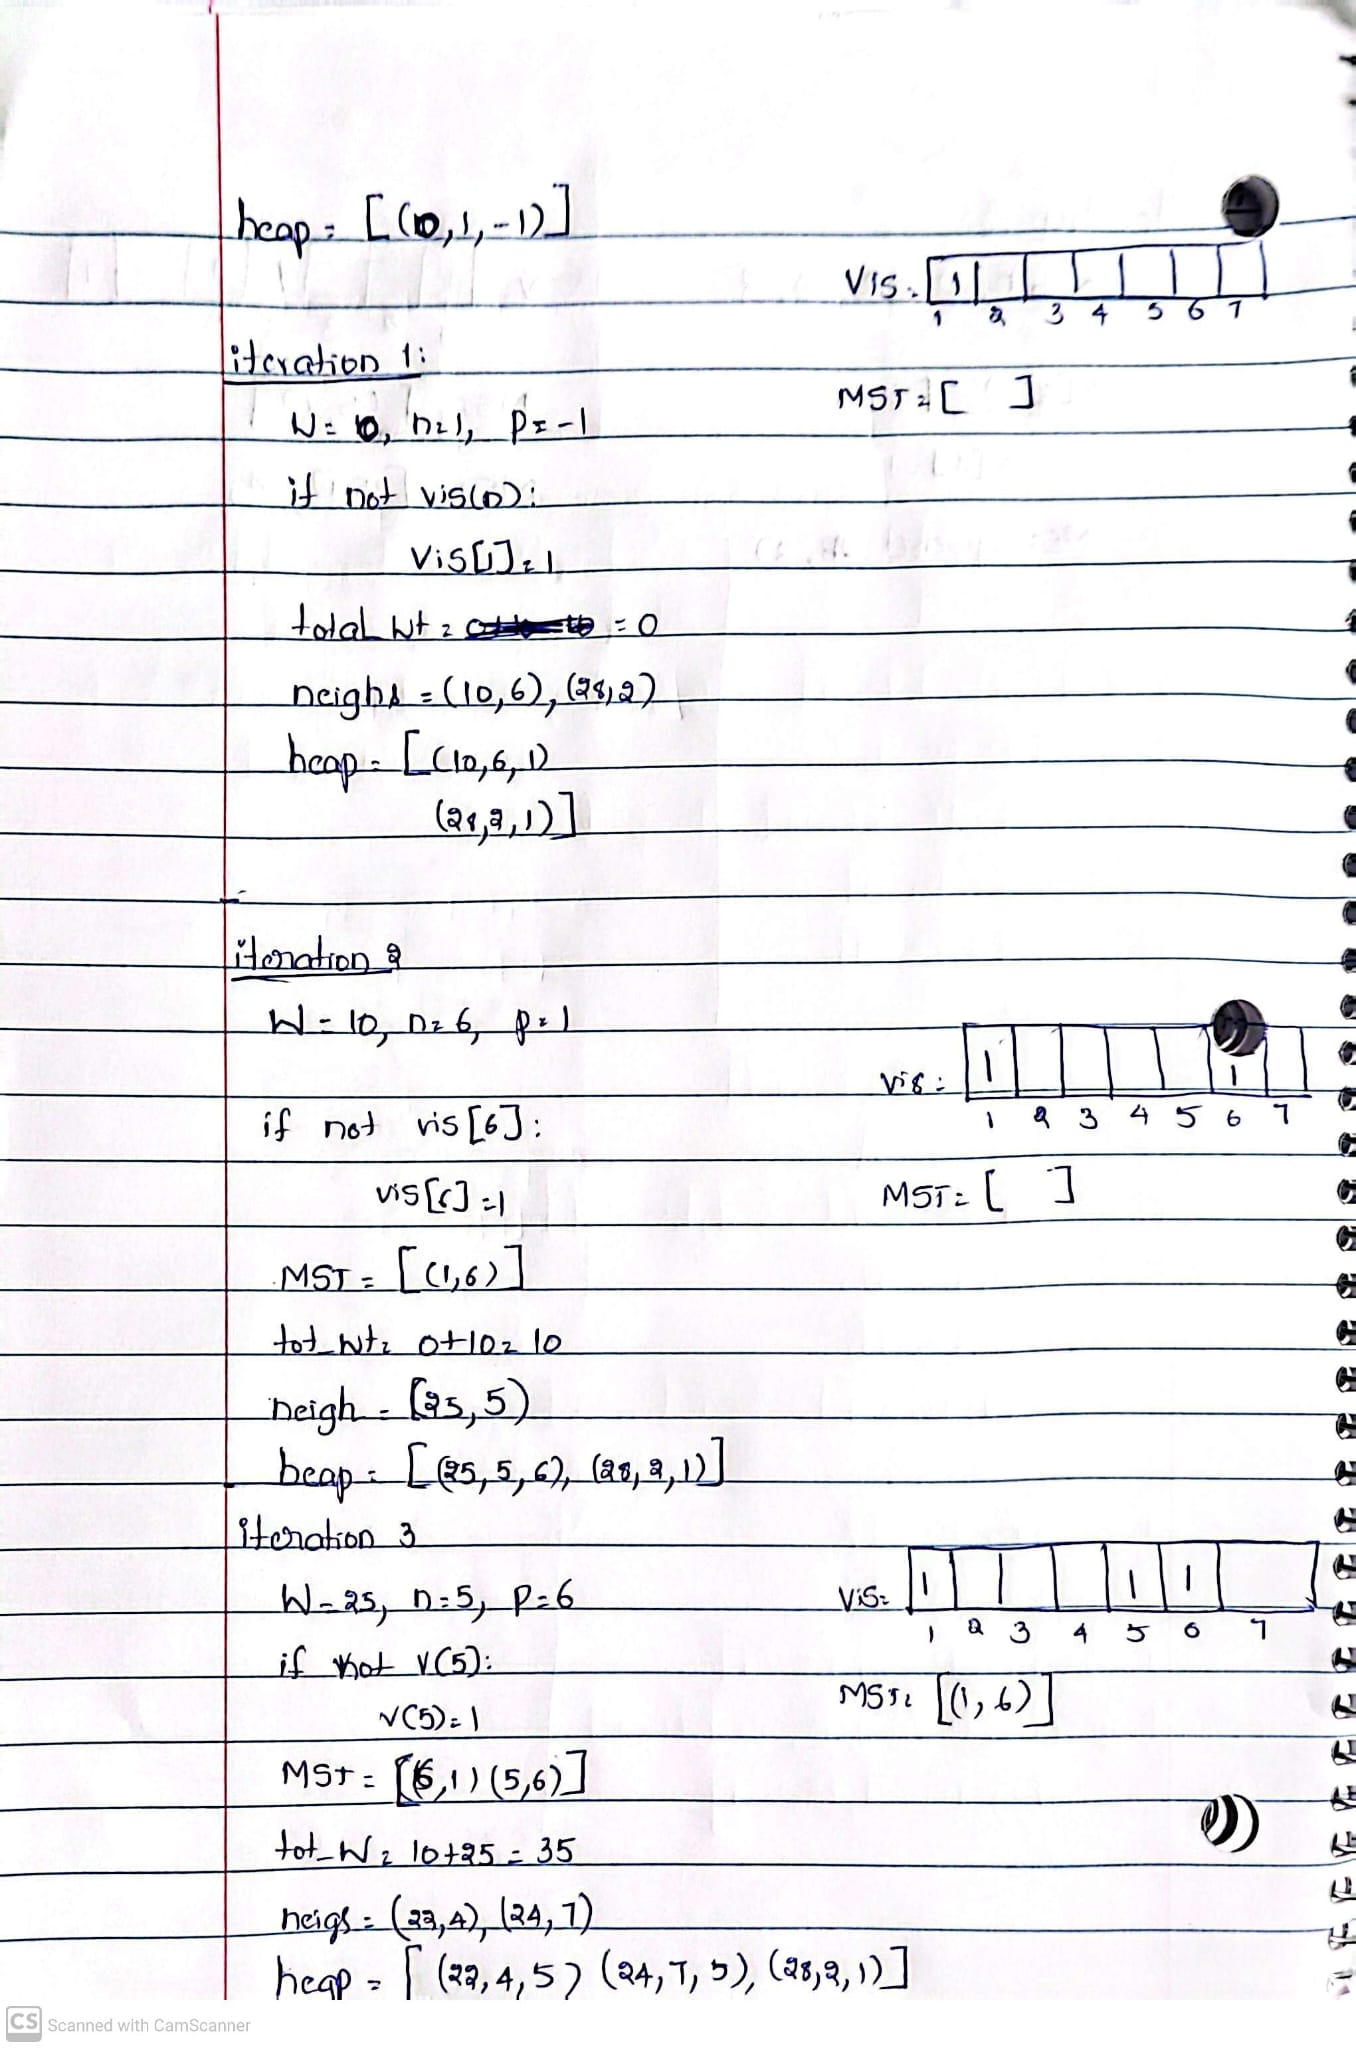 heap = [(0,1,-1)]
Vis. 1
1 2 3 4 5 6 7
iteration 1:
MST = [ ]
W = 0, n=1, p=-1
if not vis(n):
Vis[1]=1
total wt = = 0
neighs = (10,6), (28,2)
heap = [(10,6,1)
(28,2,1)]
iteration 2
W = 10, n=6, p=1
vis: 1 1
1 2 3 4 5 6 7
if not vis[6]:
vis[6]=1
MST = [ ]
MST = [(1,6)]
tot_wt = 0+10=10
neigh = (25,5)
heap = [(25,5,6), (28,2,1)]
iteration 3
W=25, n=5, p=6
Vis= 1 1 1
1 2 3 4 5 6 7
if not V(5):
V(5)=1
MST= [(1,6)]
MST = [(6,1)(5,6)]
tot_W = 10+25 = 35
neigs = (22,4), (24,7)
heap = [(22,4,5) (24,7,5), (28,2,1)]
CS Scanned with CamScanner